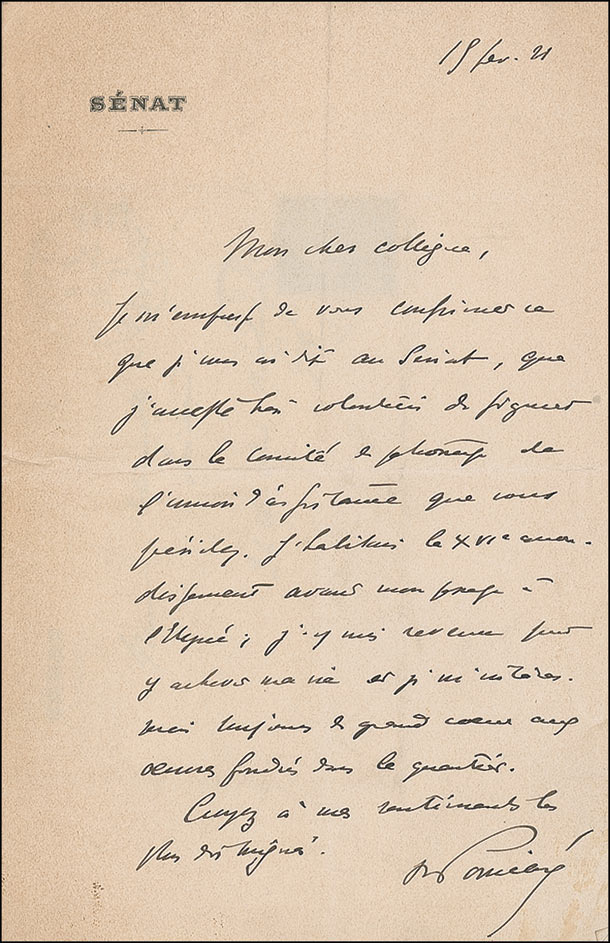 15 fév. 21
SÉNAT
Mon cher collègue,
Je m'empresse de vous confirmer ce
que je vous ai dit au Sénat, que
j'accepte très volontiers de figurer
dans le comité de patronage de
l'union d'assistance que vous
présidez. J'habitais le XVIe arron-
dissement avant mon passage à
l'Elysée; j'y suis revenu pour
y achever ma vie et je m'intéres-
serai toujours de grand coeur aux
oeuvres fondées dans le quartier.
Croyez à mes sentiments les
plus distingués.
Poincaré